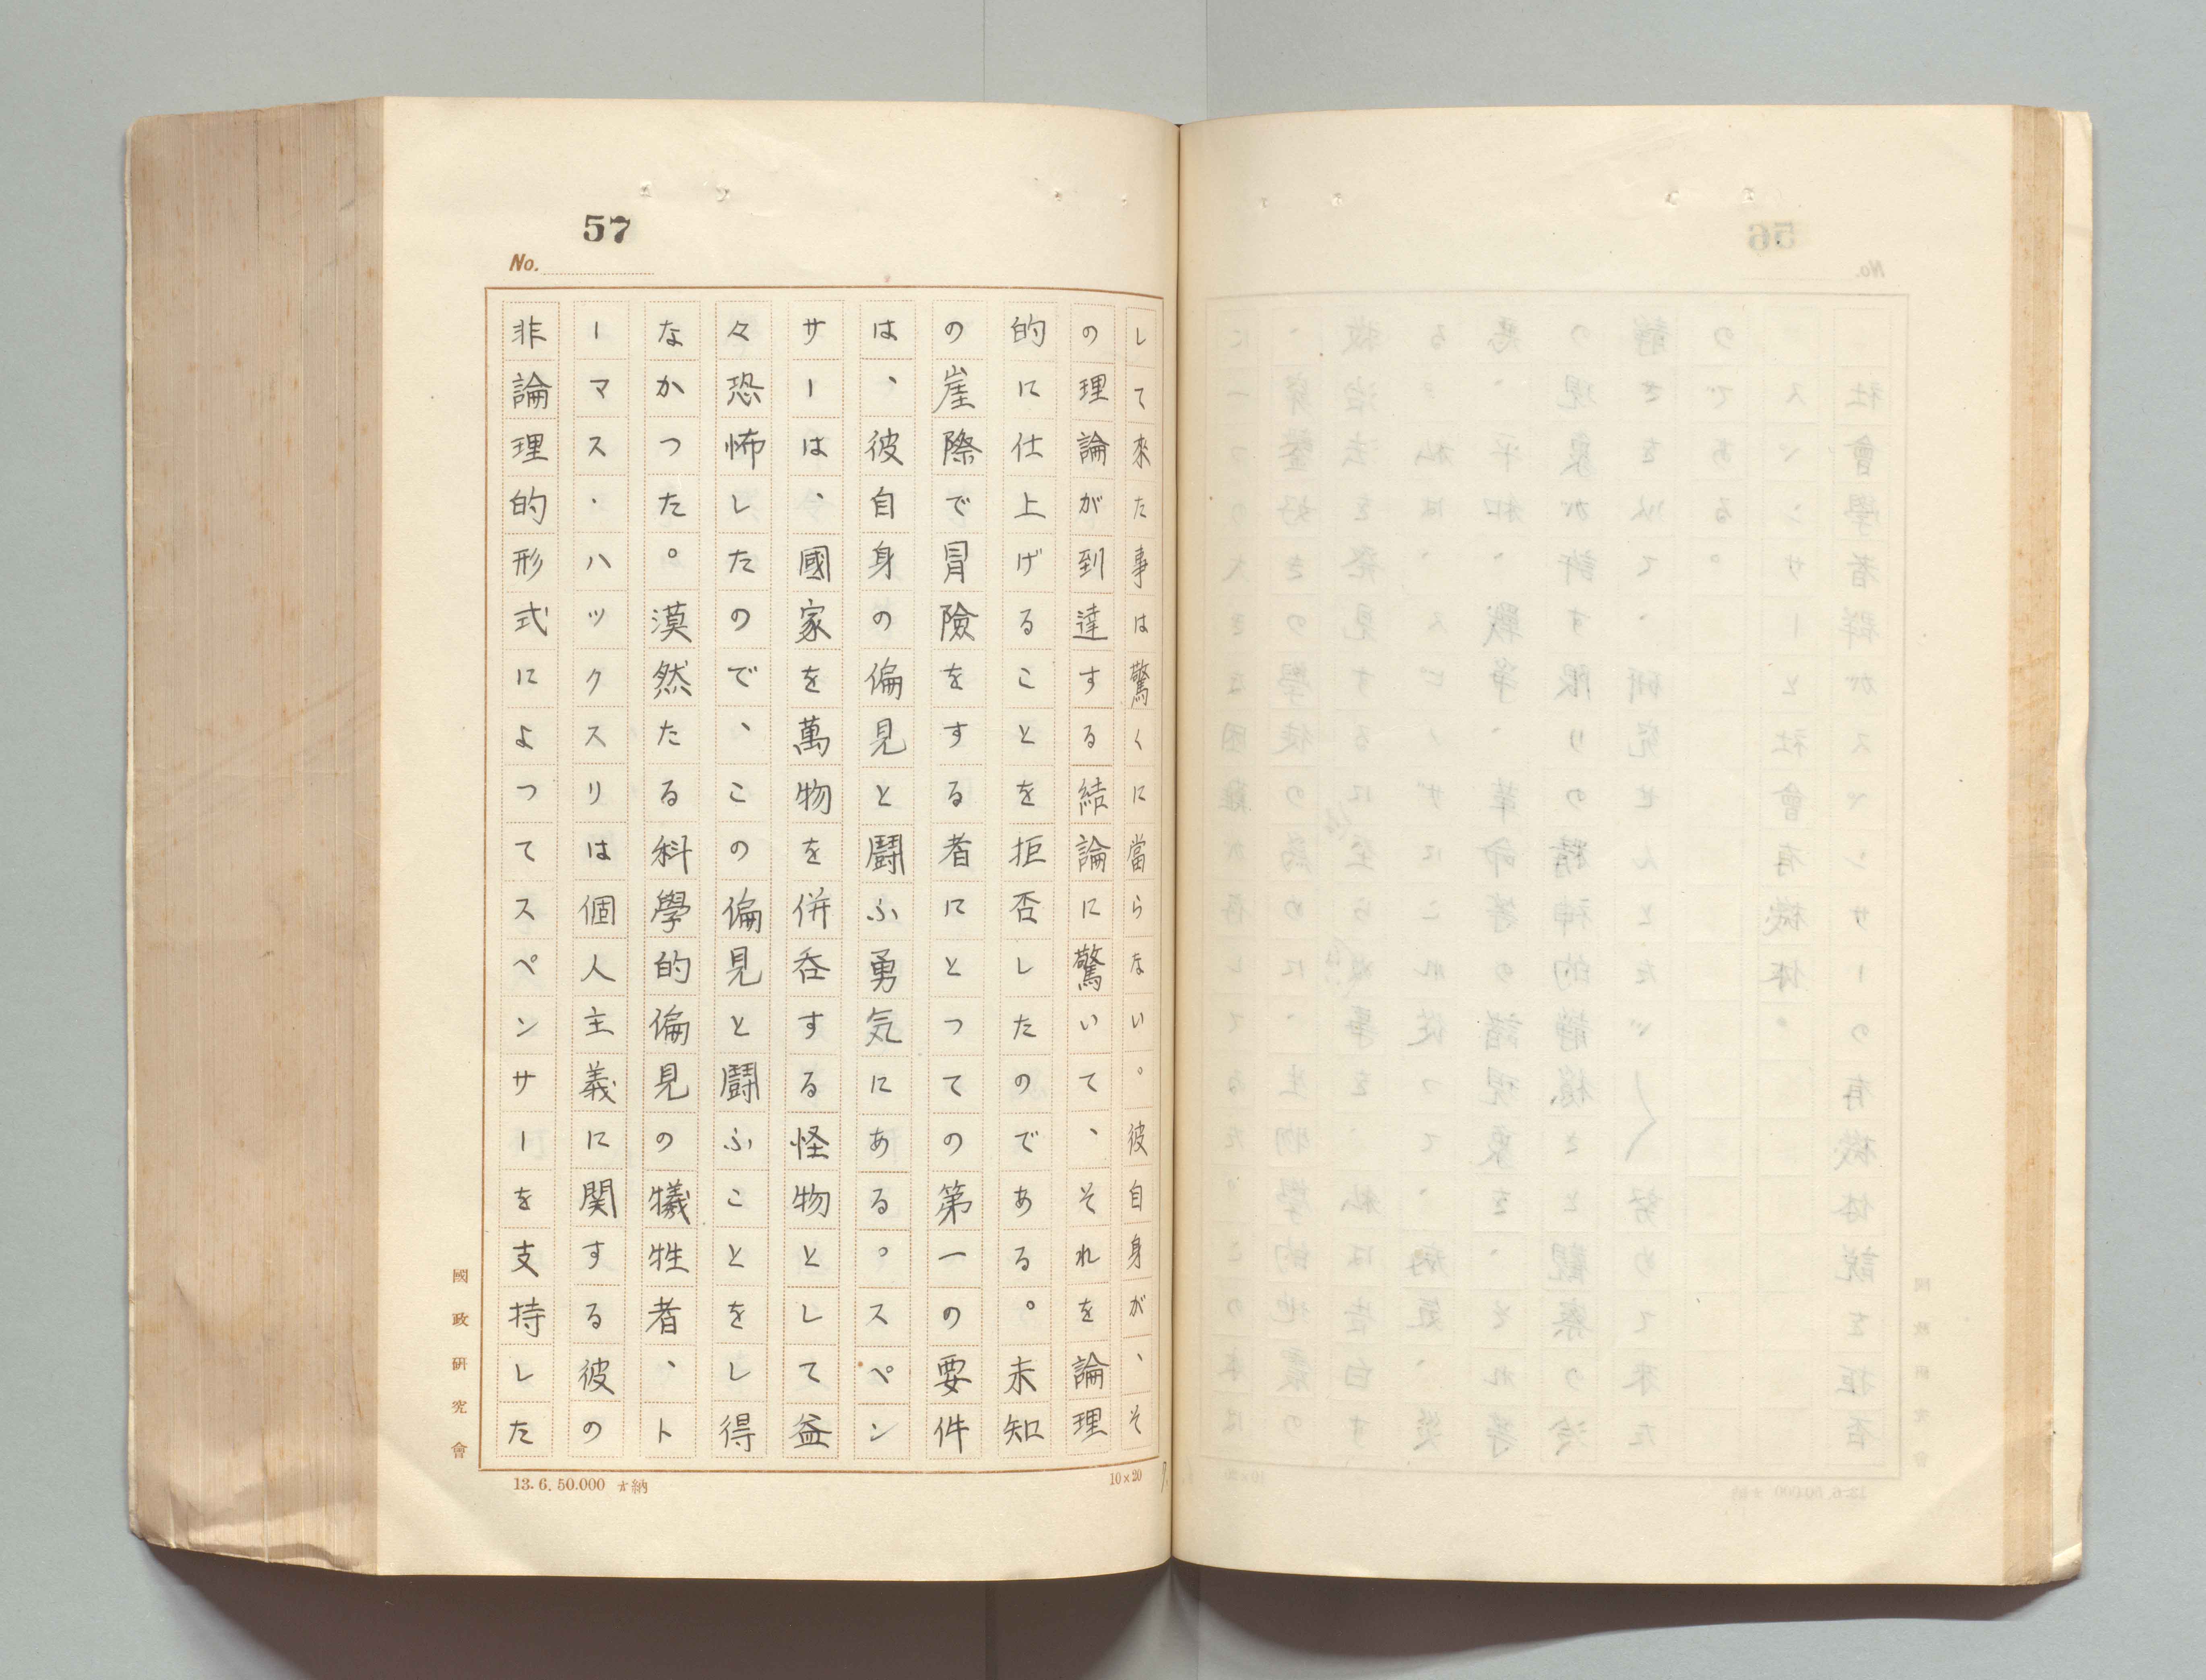 57
No.
して來た事は驚くに當らない。彼自身が、そ
の理論が到達する結論に驚いて、それを論理
的に仕上げることを拒否したのである。未知
の崖際で冒險をする者にとつての第一の要件
は、彼自身の偏見と闘ふ勇気にある。スペン
サーは、國家を萬物を併呑する怪物として益
々恐怖したので、この偏見と闘ふことをし得
なかつた。漠然たる科學的偏見の犠牲者、ト
ーマス・ハックスリは個人主義に関する彼の
非論理的形式によつてスペンサーを支持した
國政研究會
10×20
13.6.50.000 納